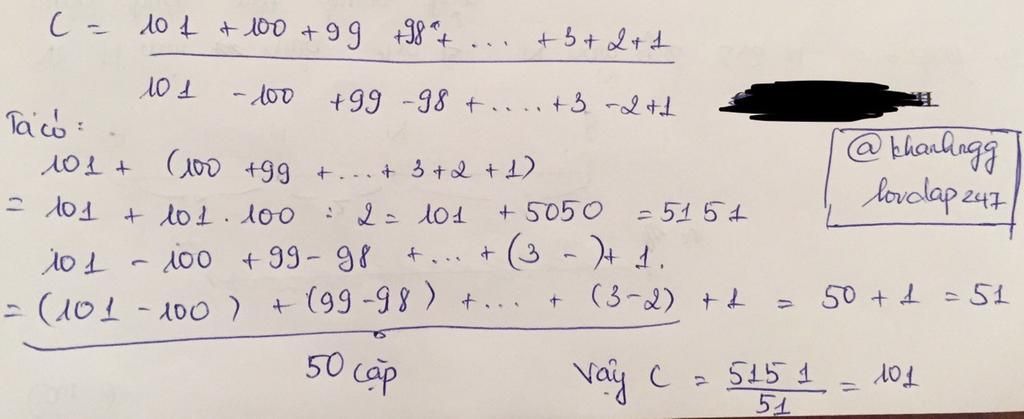 C = 101 + 100 + 99 + 98 + ... + 3 + 2 + 1
101 - 100 + 99 - 98 + .... + 3 - 2 + 1
Ta có :
101 + (100 + 99 + ... + 3 + 2 + 1)
= 101 + 101 . 100 : 2 = 101 + 5050 = 5151
101 - 100 + 99 - 98 + ... + (3 - ) + 1.
= (101 - 100) + (99 - 98) + ... + (3 - 2) + 1 = 50 + 1 = 51
50 cặp
Vậy C = 5151 / 51 = 101
@khanhngg
lovdap247